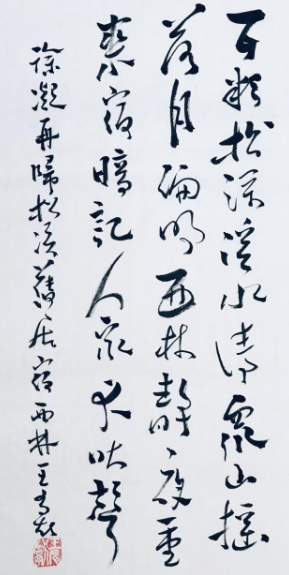 五粒松深溪水清眾山摇
落月偏明西林静夜重
来宿暗記人家犬吠聲
徐凝再歸松溪舊居宿西林王